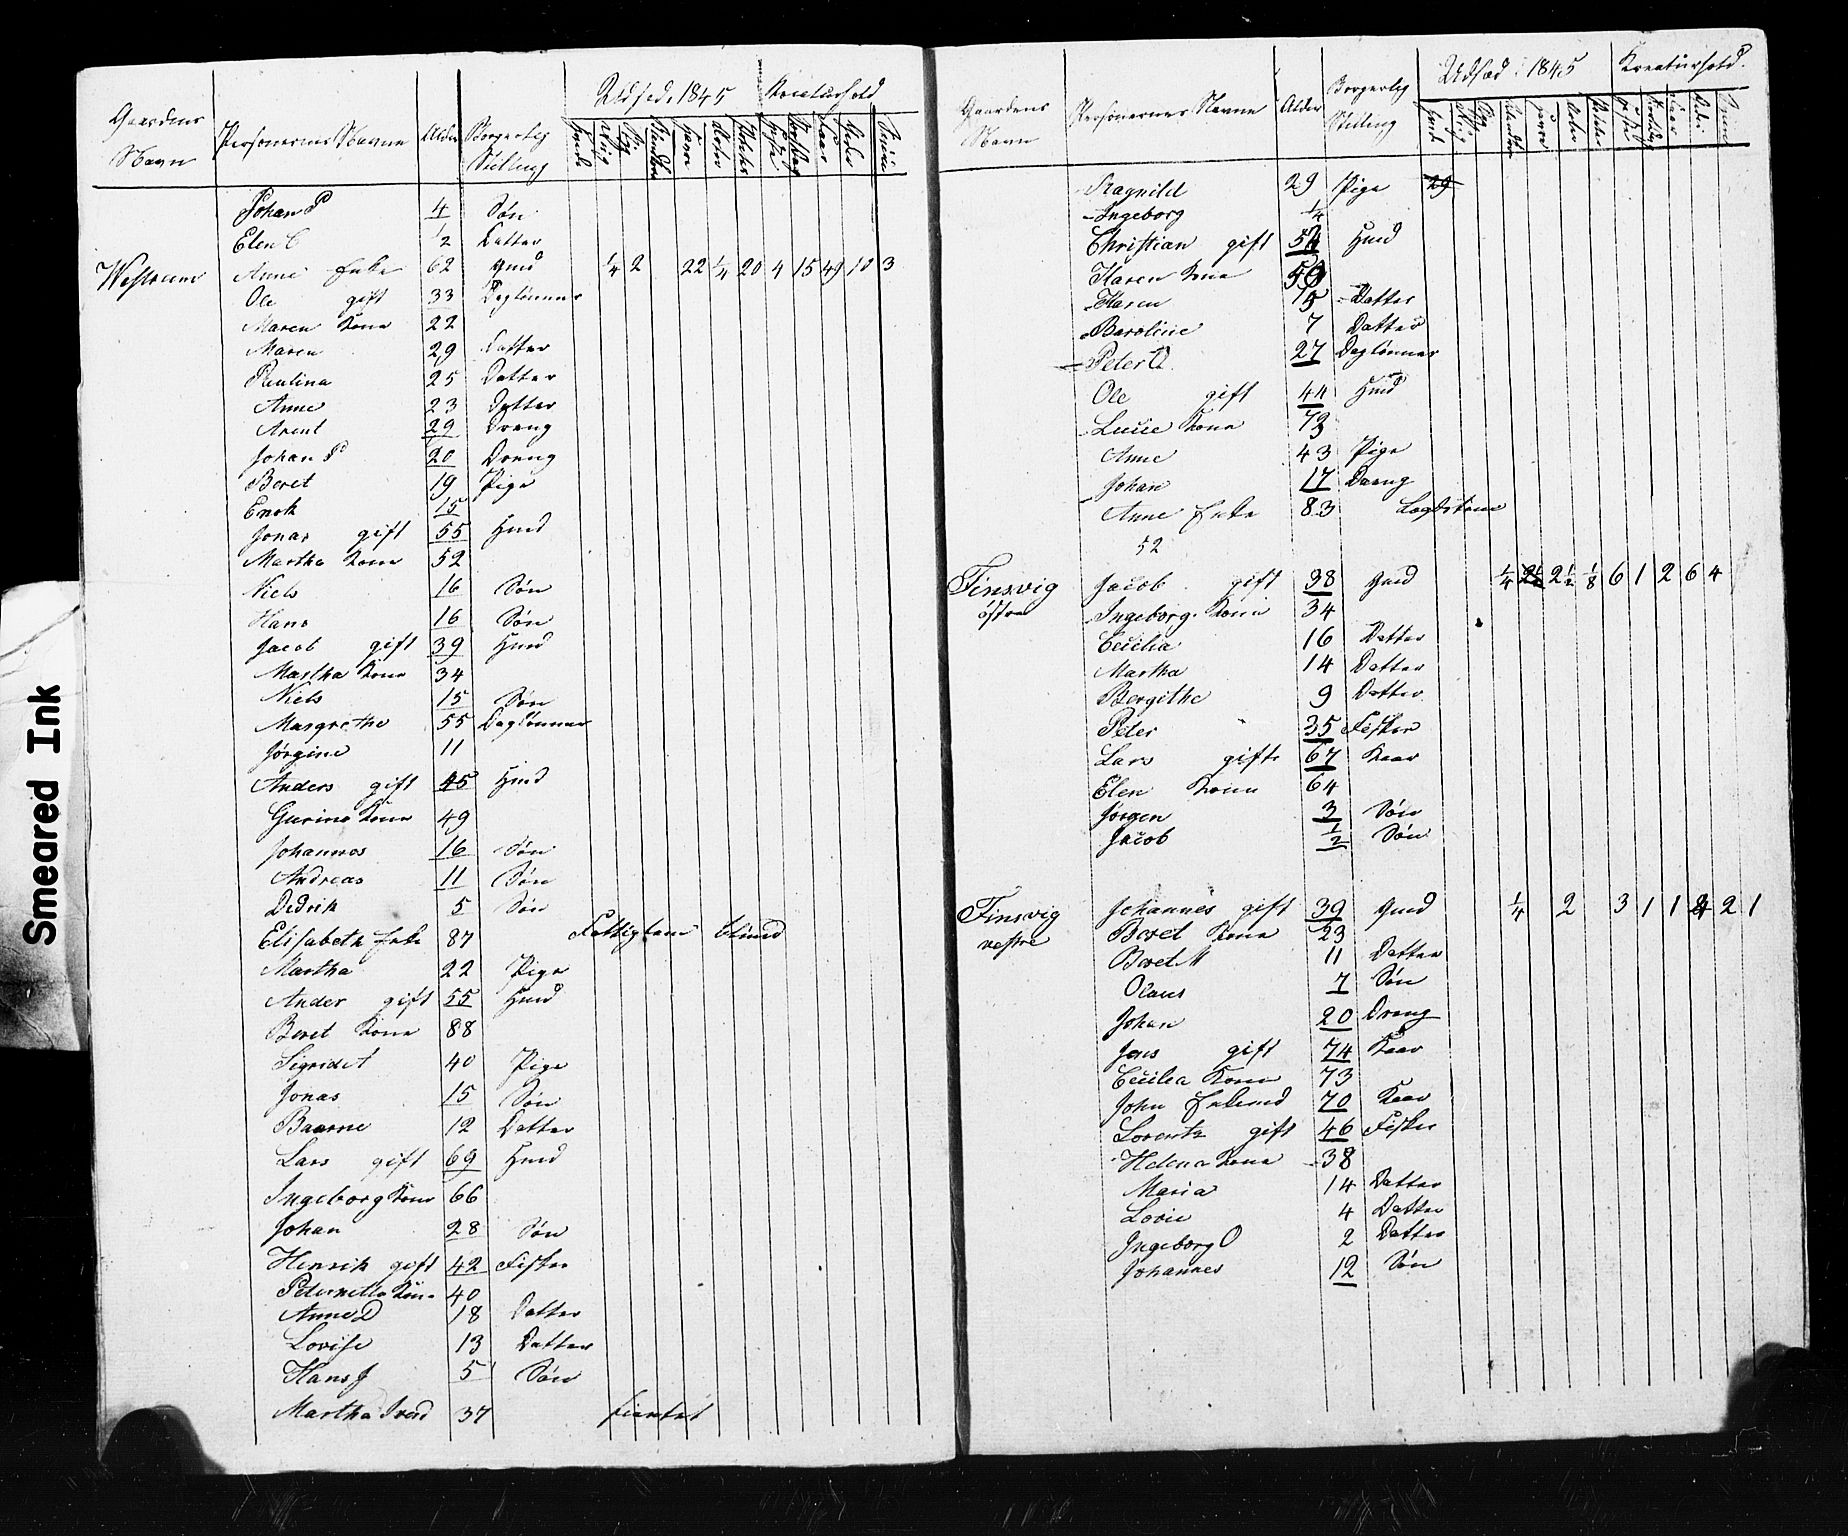 Smeared Ink
Gaardens Navn Personernes Navne Alder Borgerlig Stilling Udsæd 1845 Kreaturhold
Johan P 4 Søn
Elen C 1/2 Datter
Anne Enke 62 Gmd 1/4 2 22 1/4 20 4 15 49 10 3
Ole gift 33 Daglønner
Maren Kone 22
Maren 29 Datter
Paulina 25 Datter
Anne 23 Datter
Arent 29 Dreng
Johan P 20 Dreng
Beret 19 Pige
Enok 15
Jonas gift 55 Hmd
Martha Kone 52
Niels 16 Søn
Hans 16 Søn
Jacob gift 39 Hmd
Martha Kone 34
Niels 15 Søn
Margrethe 55 Daglønner
Jørgine 11
Anders gift 45 Hmd
Gurine Kone 49
Johannes 16 Søn
Andreas 11 Søn
Didrik 5 Søn
Elisabeth Enke 87 Fattiglem blind
Martha 22 Pige
Ander gift 55 Hmd
Beret Kone 88
Sigridet 40 Pige
Jonas 15 Søn
12 Datter
Lars gift 69 Hmd
Ingeborg Kone 66
Johan 28 Søn
Henrik gift 42 Fisker
Peternille Kone 40
Anne D 18 Datter
Lovise 13 Datter
Hans J 5 Søn
Martha 37
Gaardens Navn Personernes Navne Alder Borgerlig Stilling Udsæd i 1845 Kreaturhold
Ragnild 29 Pige 29
Ingeborg 1/4
Christian gift 54 Hmd
Karen Kone 50
Karen 15 Datter
7 Datter
Peter O 27 Daglønner
Ole gift 44 Hmd
Lucie Kone 73
Anne 43 Pige
Johan 17 Dreng
Anne Enke 83 Lægdslem
52
Finsvig østre Jacob gift 38 Gmd 1/4 2 1/2 1/8 6 1 2 6 4
Ingeborg Kone 34
Cecilia 16 Datter
Martha 14 Datter
Bergithe 9 Datter
Peter 35 Fisker
Lars gift 67 Kaar
Elen Kone 64
Jørgen 3 Søn
Jacob 1/2 Søn
Finsvig vestre Johannes gift 39 Gmd 1/4 2 3 1 1 2 1
Beret Kone 23
Beret M 11 Datter
Olaus 7 Søn
Johan 20 Dreng
Jens gift 74 Kaar
Cecilia Kone 73
John Enkemd 70 Kaar
Lorentz gift 46 Fisker
Helena Kone 38
Maria 14 Datter
Lovise 4 Datter
Ingeborg O 2 Datter
Johannes 12 Søn